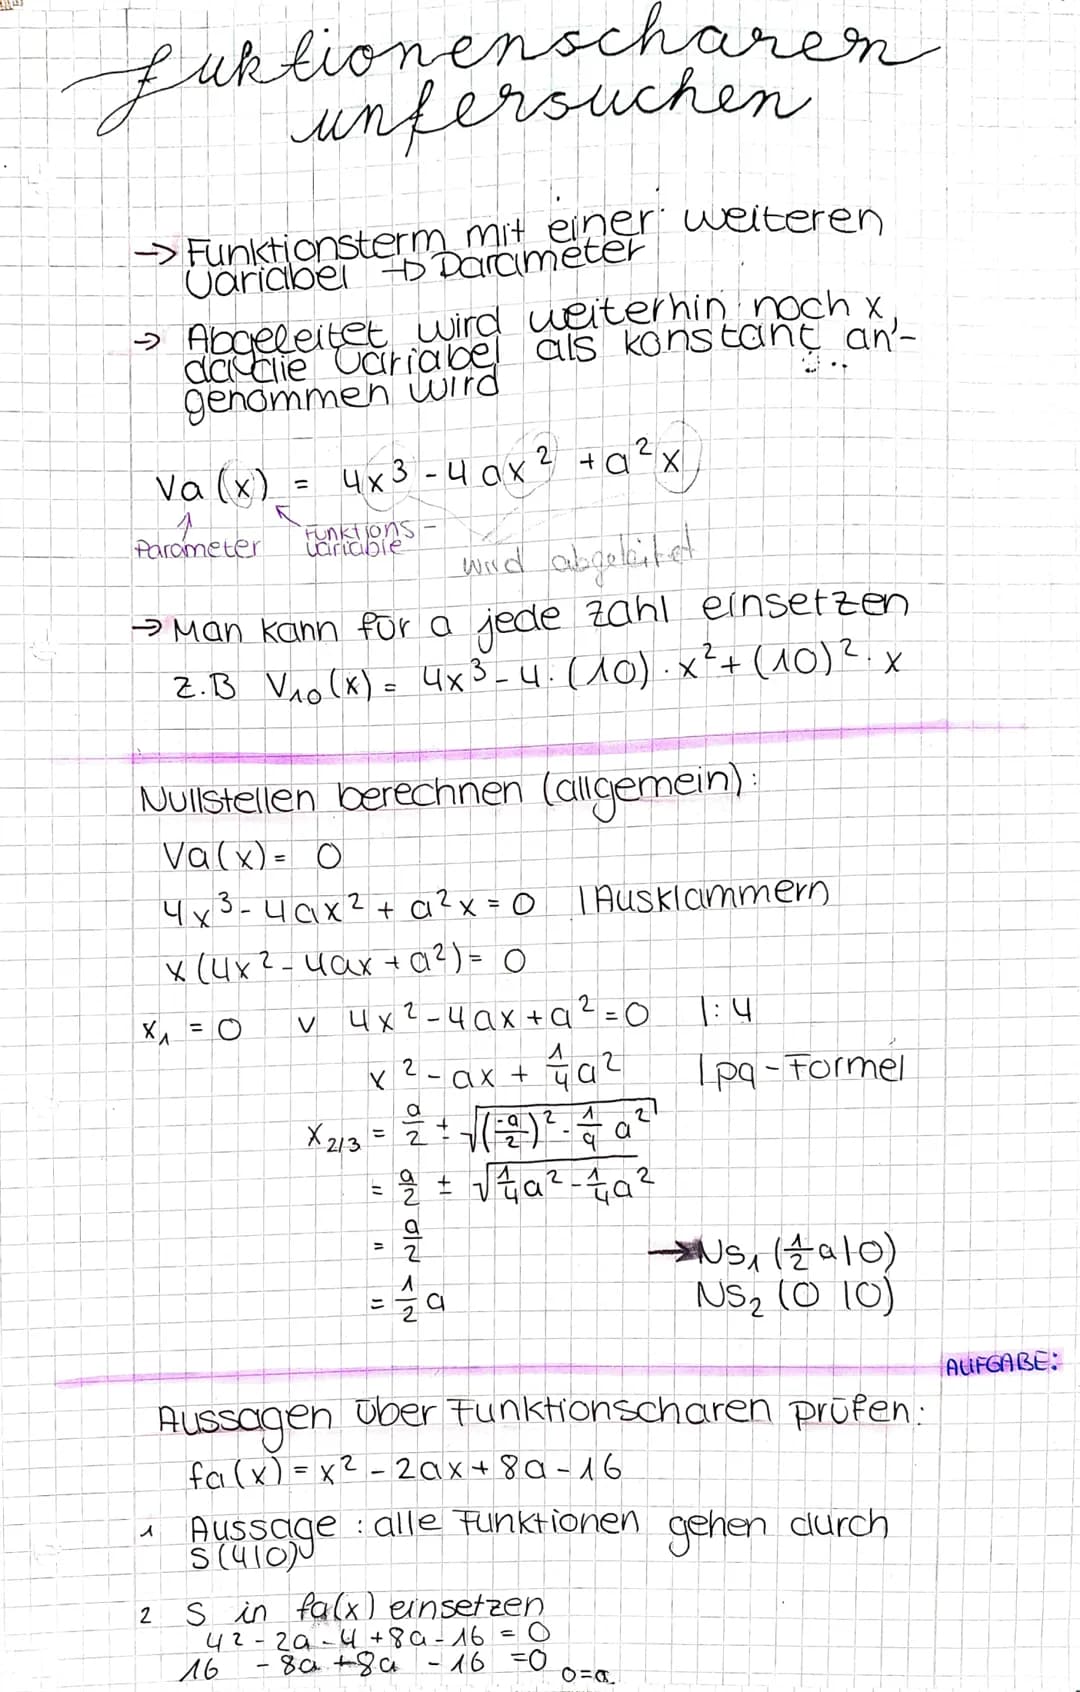 fuktionenscharen
untersuchen
→ Funktionsterm mit einer weiteren
Variabel → Parameter
→ Abgeleitet wird weiterhin noch x,
da die Variabel als konstant an-
genommen wird
Va (x) = 4x³ - 4ax² + a²x
Parameter
Funktions-
variable
wird abgeleitet
→ Man kann für a jede zahl einsetzen
z.B V₁₀(x) = 4x³ - 4·(10)·x² + (10)²·x
Nullstellen berechnen (allgemein):
Va(x) = 0
4x³ - 4ax² + a²x = 0 | Ausklammern
x(4x² - 4ax + a²) = 0
x₁ = 0 v 4x² - 4ax + a² = 0 |:4
x² - ax + 1/4 a² | pq-Formel
x₂/₃ = a/2 ± √((-a/2)² - 1/4 a²)
= a/2 ± √(1/4 a² - 1/4 a²)
= a/2
= 1/2 a
→ NS₁ (1/2 a|0)
NS₂ (0|0)
AUFGABE:
Aussagen über Funktionscharen prüfen:
fa(x) = x² - 2ax + 8a - 16
1 Aussage: alle Funktionen gehen durch
S(4|0)
2 S in fa(x) einsetzen
4² - 2a·4 + 8a - 16 = 0
16 - 8a + 8a - 16 = 0 0=a